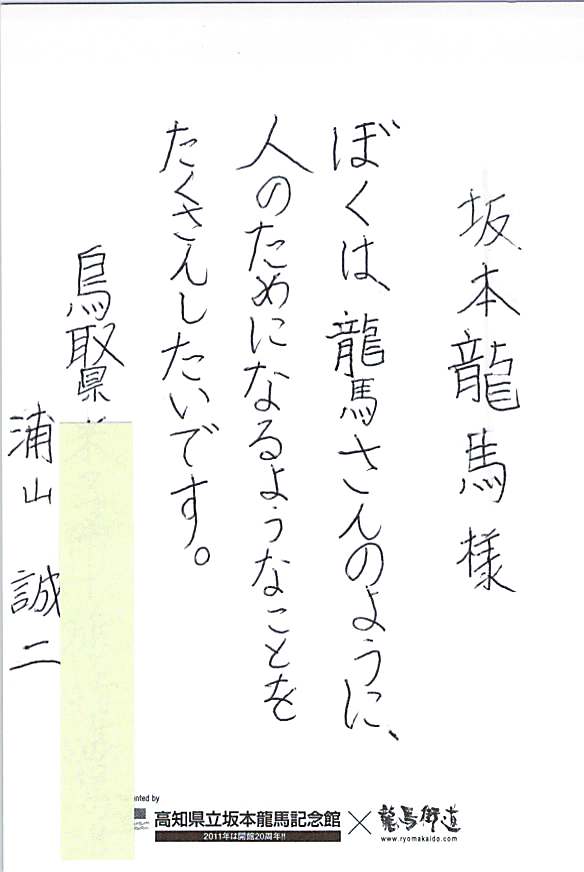 坂本龍馬様
ぼくは、龍馬さんのように、
人のためになるようなことを
たくさんしたいです。
鳥取県
浦山 誠二
nted by
高知県立坂本龍馬記念館×龍馬街道
2011年は開館20周年!!
www.ryomakaido.com